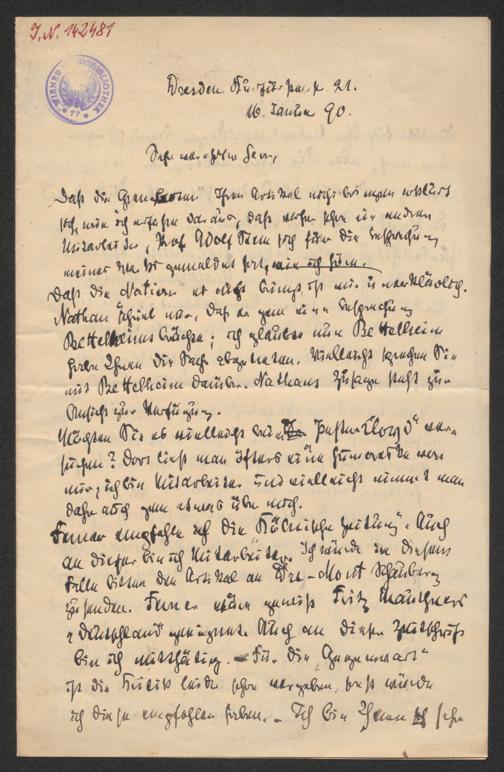 J. N. 142481
WIENER STADTBIBLIOTHEK
Dresden 21.
16. Januar 90.
Sehr verehrter Herr,
Daß die Ihren Artikel nicht bringen
ich, wie ich daraus, daß schon ein andrer
Mitarbeiter, Prof Wolf sich für die Besprechung
meiner gemeldet hat, wie ich höre.
Daß die „Nation" es nicht bringt, ist mir unerklärlich.
Nathan schrieb mir, daß er gern eine Besprechung
Bettelheims brächte; ich glaube nun Bettelheim
habe Ihnen die Sache abgetreten. Vielleicht sprechen Sie
mit Bettelheim darüber. Nathans Zusage steht zur
Ansicht zur Verfügung.
Möchten Sie es vielleicht beim „Pester Lloyd" ver-
suchen? Dort ließ man öfters eine Humoreske von
mir; ich bin Mitarbeiter und vielleicht nimmt man
daher auch gern etwas über mich.
Ferner empfehle ich die „Kölnische Zeitung". Auch
an dieser bin ich Mitarbeiter. Ich würde in diesem
Falle bitten den Artikel an Du-Mont Schauberg
zu senden. Ferner wäre gewiß Fritz Mauthners
„Deutschland" geeignet. Auch an dieser Zeitschrift
bin ich mitthätig. – Für die „Gegenwart"
ist die Kritik leider schon vergeben, sonst würde
ich diese empfohlen haben. – Ich bin Ihnen sehr